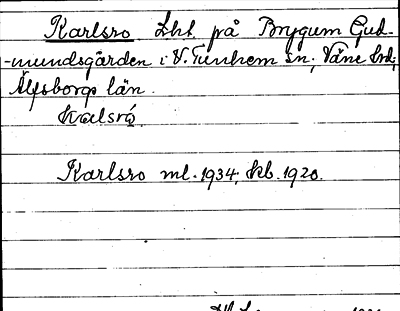 Karlsro Lht. på Brygum Gud-
-mundsgården i V. Tunhem sn, Väne hd,
Älfsborgs län.
Karlsro ml. 1934, kb. 1920.